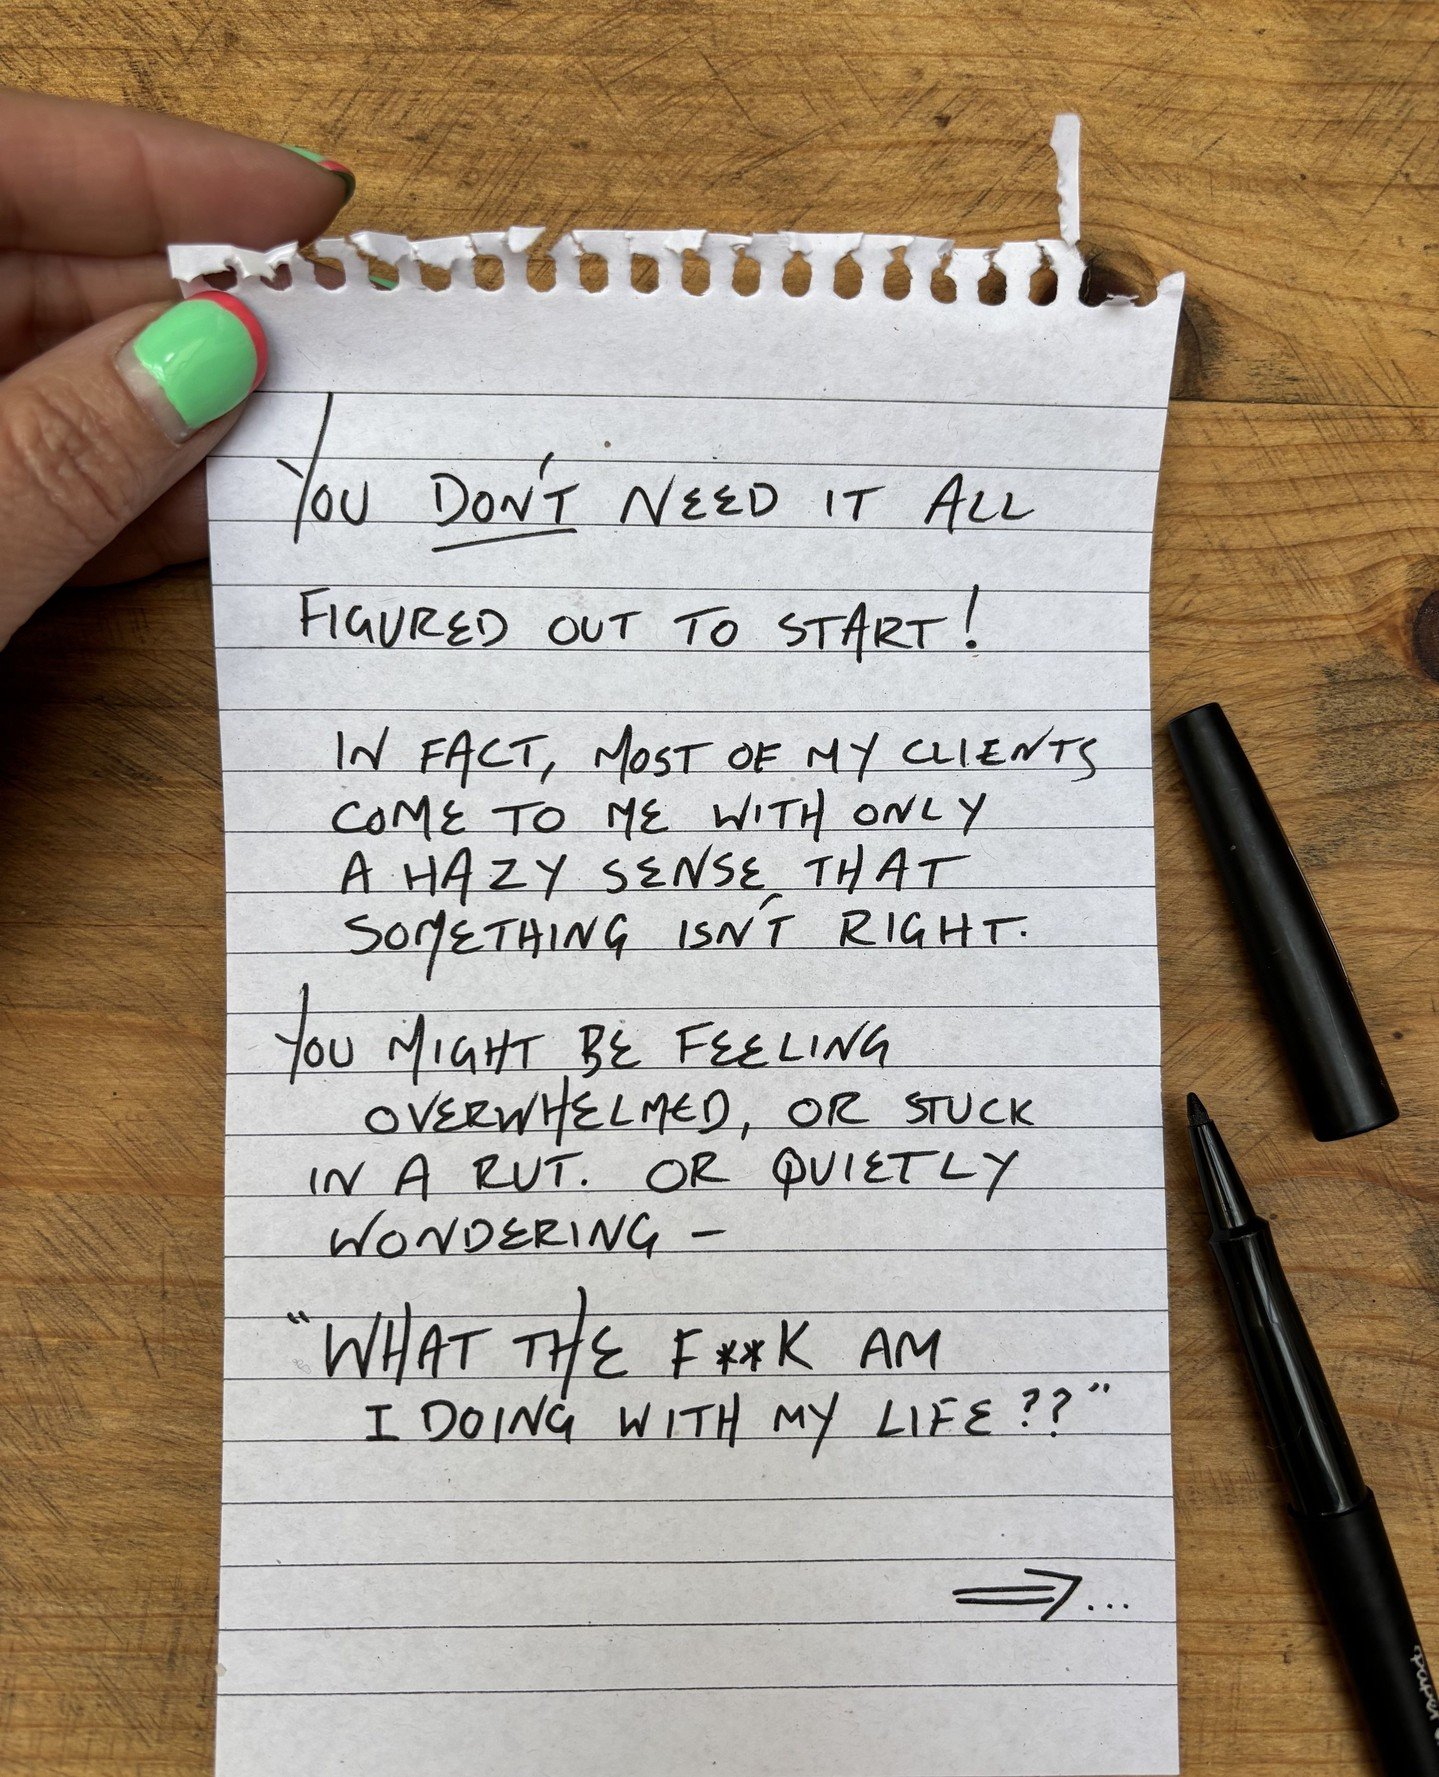 YOU DON'T NEED IT ALL
FIGURED OUT TO START!
IN FACT, MOST OF MY CLIENTS
COME TO ME WITH ONLY
A HAZY SENSE THAT
SOMETHING ISN'T RIGHT.
YOU MIGHT BE FEELING
OVERWHELMED, OR STUCK
IN A RUT. OR QUIETLY
WONDERING –
"WHAT THE F**K AM
I DOING WITH MY LIFE??"
⇒...